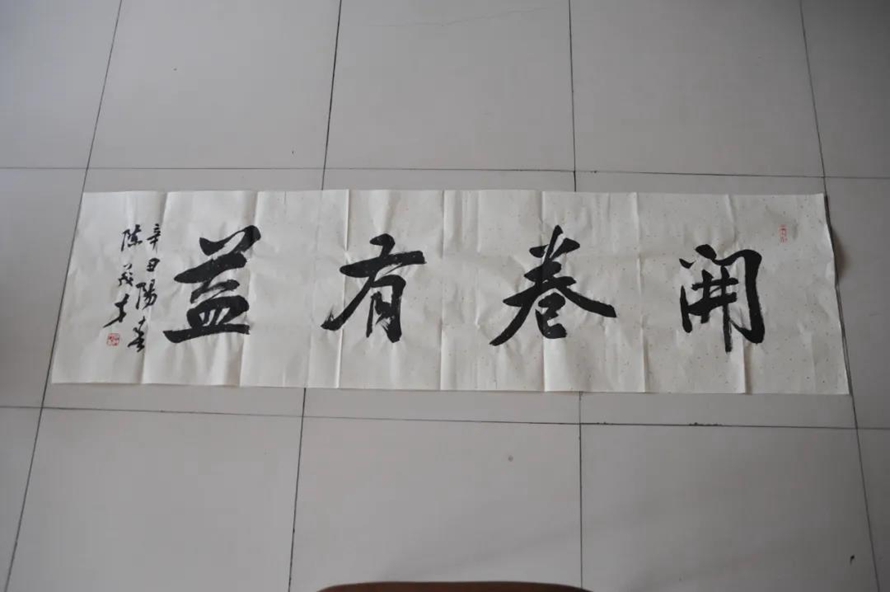 開卷有益
辛丑陽春
陳茂才